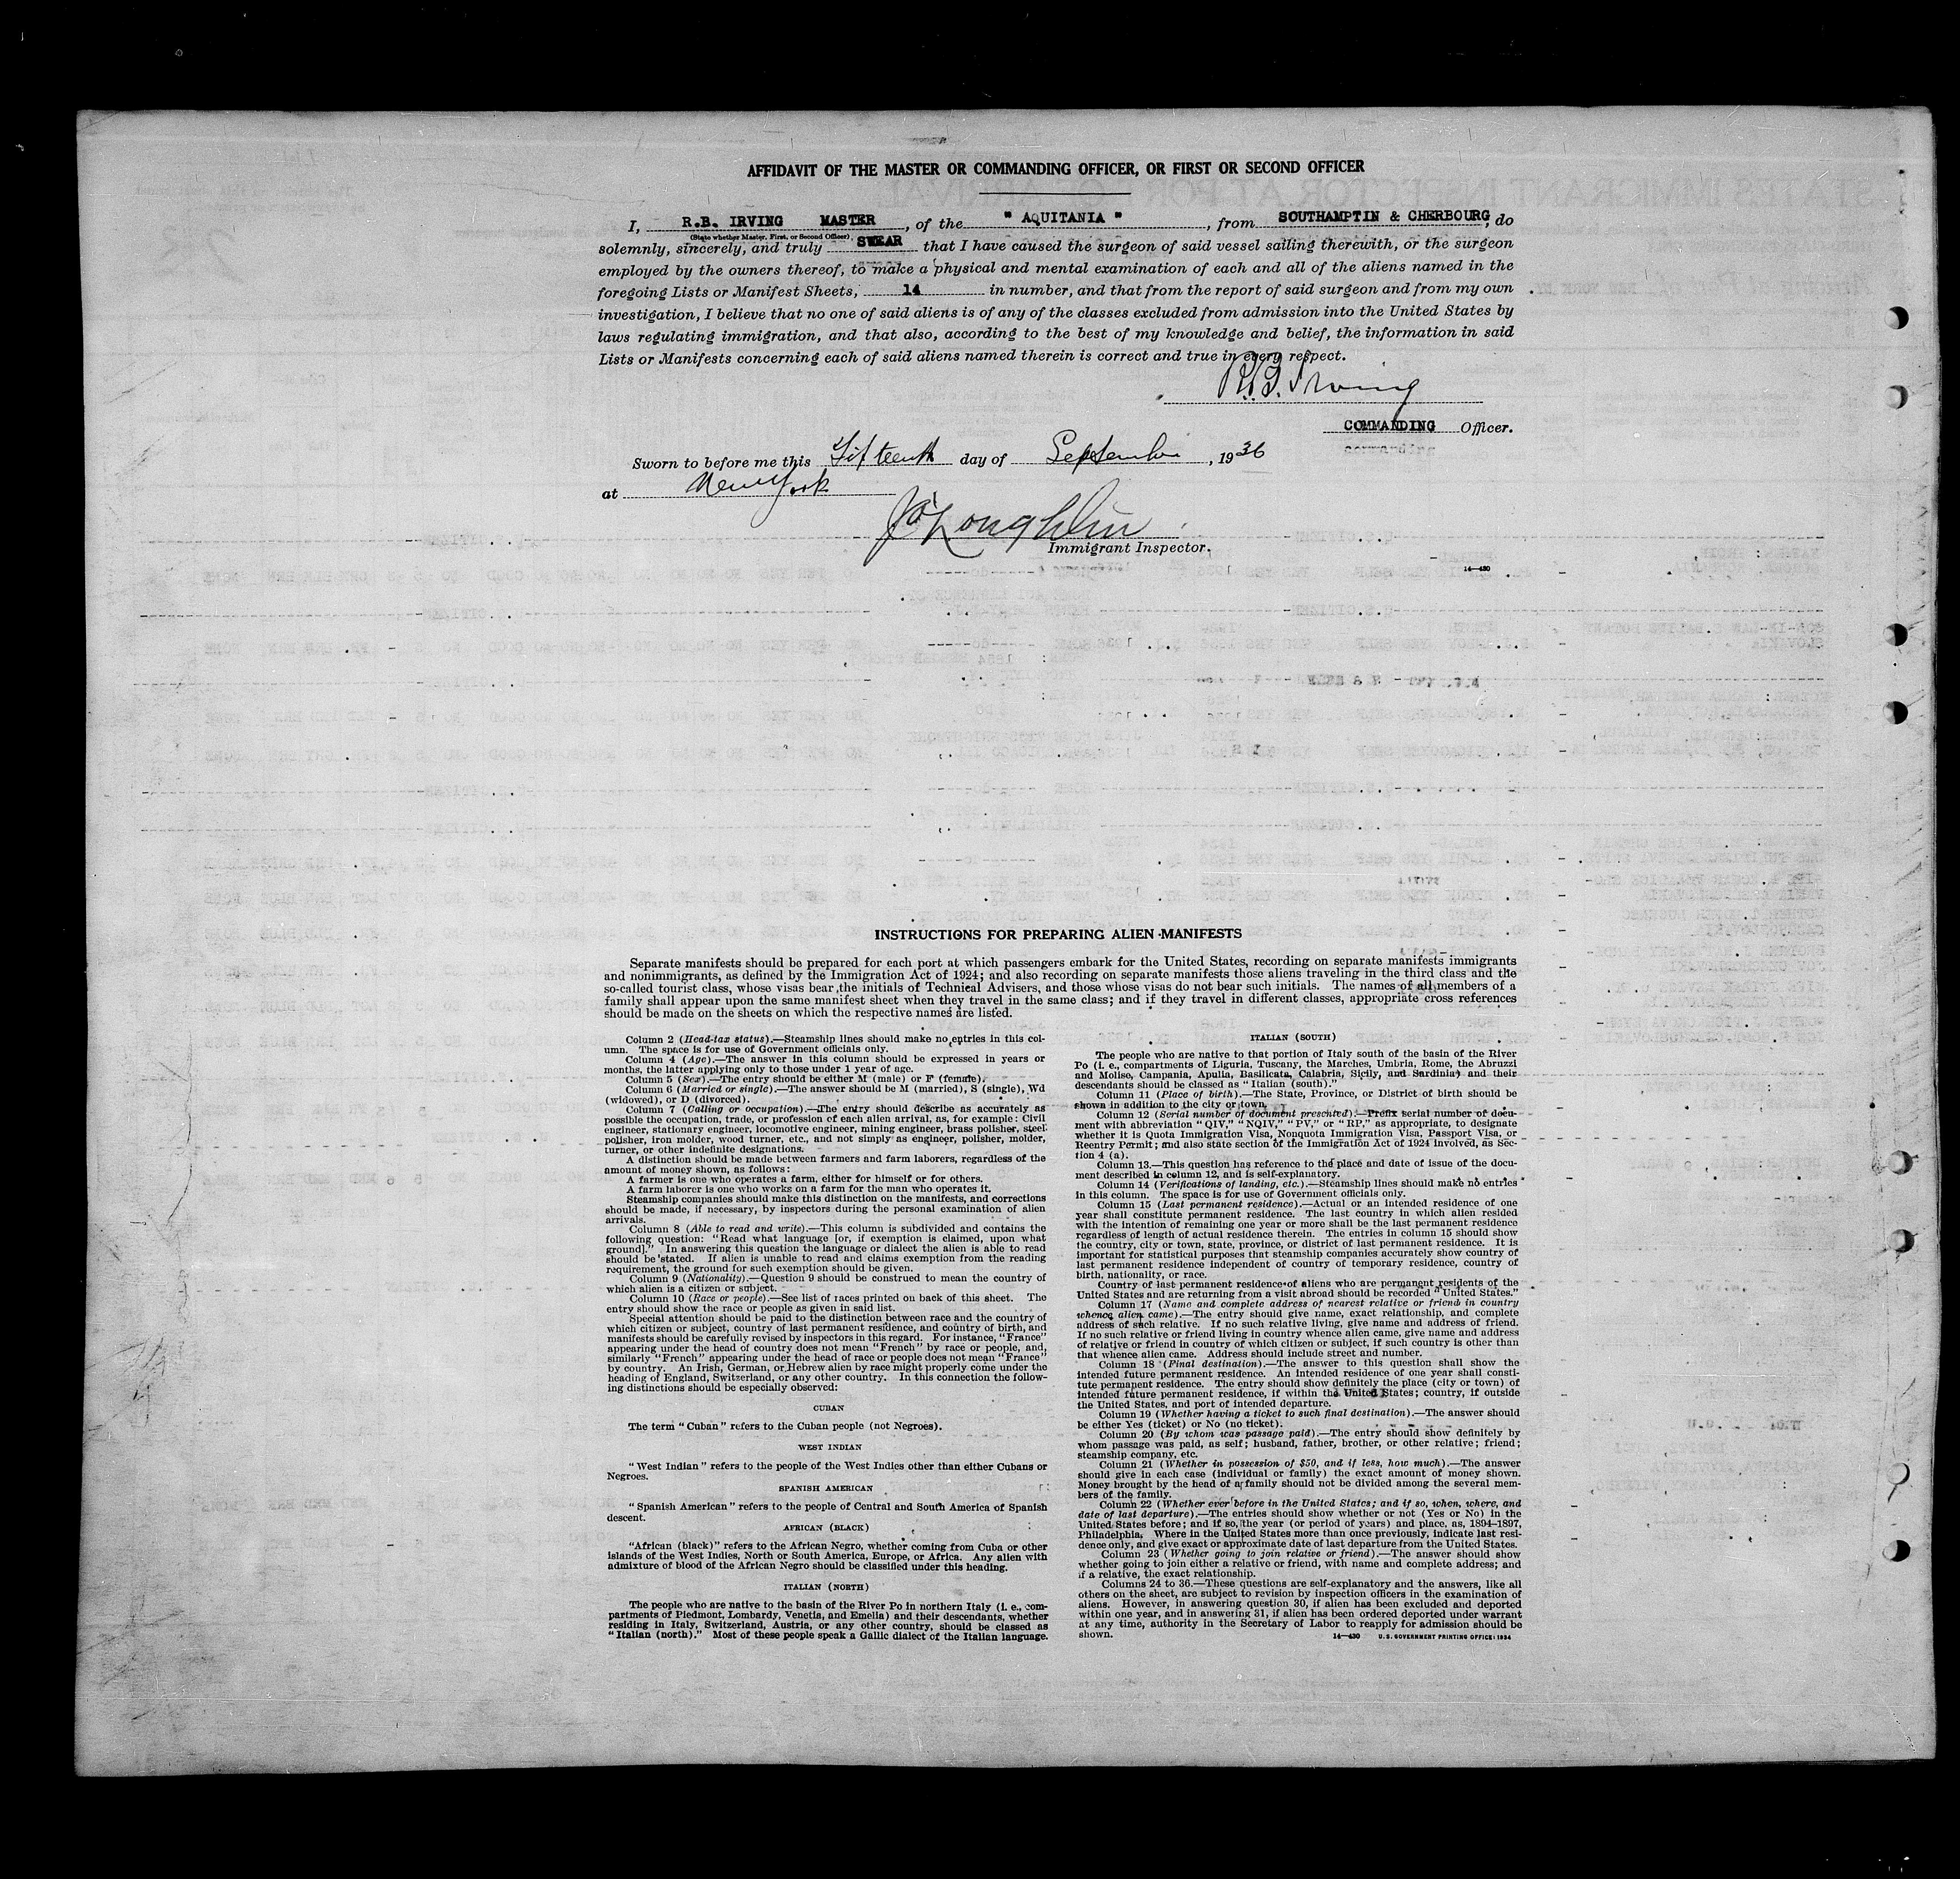 AFFIDAVIT OF THE MASTER OR COMMANDING OFFICER, OR FIRST OR SECOND OFFICER
I, R.B. IRVING MASTER, of the " AQUITANIA ", from SOUTHAMPTIN & CHERBOURG, do
(State whether Master, First, or Second Officer)
solemnly, sincerely, and truly SWEAR that I have caused the surgeon of said vessel sailing therewith, or the surgeon
employed by the owners thereof, to make a physical and mental examination of each and all of the aliens named in the
foregoing Lists or Manifest Sheets, 14 in number, and that from the report of said surgeon and from my own
investigation, I believe that no one of said aliens is of any of the classes excluded from admission into the United States by
laws regulating immigration, and that also, according to the best of my knowledge and belief, the information in said
Lists or Manifests concerning each of said aliens named therein is correct and true in every respect.
R.B. Irving
COMMANDING Officer.
Sworn to before me this Fifteenth day of September, 1936
at New York
J O'Loughlin
Immigrant Inspector.
14—430
INSTRUCTIONS FOR PREPARING ALIEN MANIFESTS
Separate manifests should be prepared for each port at which passengers embark for the United States, recording on separate manifests immigrants
and nonimmigrants, as defined by the Immigration Act of 1924; and also recording on separate manifests those aliens traveling in the third class and the
so-called tourist class, whose visas bear the initials of Technical Advisers, and those whose visas do not bear such initials. The names of all members of a
family shall appear upon the same manifest sheet when they travel in the same class; and if they travel in different classes, appropriate cross references
should be made on the sheets on which the respective names are listed.
Column 2 (Head-tax status).—Steamship lines should make no entries in this col-
umn. The space is for use of Government officials only.
Column 4 (Age).—The answer in this column should be expressed in years or
months, the latter applying only to those under 1 year of age.
Column 5 (Sex).—The entry should be either M (male) or F (female).
Column 6 (Married or single).—The answer should be M (married), S (single), Wd
(widowed), or D (divorced).
Column 7 (Calling or occupation).—The entry should describe as accurately as
possible the occupation, trade, or profession of each alien arrival, as, for example: Civil
engineer, stationary engineer, locomotive engineer, mining engineer, brass polisher, steel
polisher, iron molder, wood turner, etc., and not simply as engineer, polisher, molder,
turner, or other indefinite designations.
A distinction should be made between farmers and farm laborers, regardless of the
amount of money shown, as follows:
A farmer is one who operates a farm, either for himself or for others.
A farm laborer is one who works on a farm for the man who operates it.
Steamship companies should make this distinction on the manifests, and corrections
should be made, if necessary, by inspectors during the personal examination of alien
arrivals.
Column 8 (Able to read and write).—This column is subdivided and contains the
following question: "Read what language [or, if exemption is claimed, upon what
ground]." In answering this question the language or dialect the alien is able to read
should be stated. If alien is unable to read and claims exemption from the reading
requirement, the ground for such exemption should be given.
Column 9 (Nationality).—Question 9 should be construed to mean the country of
which alien is a citizen or subject.
Column 10 (Race or people).—See list of races printed on back of this sheet. The
entry should show the race or people as given in said list.
Special attention should be paid to the distinction between race and the country of
which citizen or subject, country of last permanent residence, and country of birth, and
manifests should be carefully revised by inspectors in this regard. For instance, "France"
appearing under the head of country does not mean "French" by race or people, and,
similarly "French" appearing under the head of race or people does not mean "France"
by country. An Irish, German, or Hebrew alien by race might properly come under the
heading of England, Switzerland, or any other country. In this connection the follow-
ing distinctions should be especially observed:
CUBAN
The term "Cuban" refers to the Cuban people (not Negroes).
WEST INDIAN
"West Indian" refers to the people of the West Indies other than either Cubans or
Negroes.
SPANISH AMERICAN
"Spanish American" refers to the people of Central and South America of Spanish
descent.
AFRICAN (BLACK)
"African (black)" refers to the African Negro, whether coming from Cuba or other
islands of the West Indies, North or South America, Europe, or Africa. Any alien with
admixture of blood of the African Negro should be classified under this heading.
ITALIAN (NORTH)
The people who are native to the basin of the River Po in northern Italy (i. e., com-
partments of Piedmont, Lombardy, Venetia, and Emelia) and their descendants, whether
residing in Italy, Switzerland, Austria, or any other country, should be classed as
"Italian (north)." Most of these people speak a Gallic dialect of the Italian language.
ITALIAN (SOUTH)
The people who are native to that portion of Italy south of the basin of the River
Po (i. e., compartments of Liguria, Tuscany, the Marches, Umbria, Rome, the Abruzzi
and Moliso, Campania, Apulia, Basilicata, Calabria, Sicily, and Sardinia) and their
descendants should be classed as "Italian (south)."
Column 11 (Place of birth).—The State, Province, or District of birth should be
shown in addition to the city or town.
Column 12 (Serial number of document presented).—Prefix serial number of docu-
ment with abbreviation "QIV," "NQIV," "PV," or "RP," as appropriate, to designate
whether it is Quota Immigration Visa, Nonquota Immigration Visa, Passport Visa, or
Reentry Permit; and also state section of the Immigration Act of 1924 involved, as Sec-
tion 4 (a).
Column 13.—This question has reference to the place and date of issue of the docu-
ment described in column 12, and is self-explanatory.
Column 14 (Verifications of landing, etc.).—Steamship lines should make no entries
in this column. The space is for use of Government officials only.
Column 15 (Last permanent residence).—Actual or an intended residence of one
year shall constitute permanent residence. The last country in which alien resided
with the intention of remaining one year or more shall be the last permanent residence
regardless of length of actual residence therein. The entries in column 15 should show
the country, city or town, state, province, or district of last permanent residence. It is
important for statistical purposes that steamship companies accurately show country of
last permanent residence independent of country of temporary residence, country of
birth, nationality, or race.
Country of last permanent residence of aliens who are permanent residents of the
United States and are returning from a visit abroad should be recorded "United States."
Column 17 (Name and complete address of nearest relative or friend in country
whence alien came).—The entry should give name, exact relationship, and complete
address of such relative. If no such relative living, give name and address of friend.
If no such relative or friend living in country whence alien came, give name and address
of relative or friend in country of which citizen or subject, if such country is other than
that whence alien came. Address should include street and number.
Column 18 (Final destination).—The answer to this question shall show the
intended future permanent residence. An intended residence of one year shall consti-
tute permanent residence. The entry should show definitely the place (city or town) of
intended future permanent residence, if within the United States; country, if outside
the United States, and port of intended departure.
Column 19 (Whether having a ticket to such final destination).—The answer should
be either Yes (ticket) or No (no ticket).
Column 20 (By whom was passage paid).—The entry should show definitely by
whom passage was paid, as self; husband, father, brother, or other relative; friend;
steamship company, etc.
Column 21 (Whether in possession of $50, and if less, how much).—The answer
should give in each case (individual or family) the exact amount of money shown.
Money brought by the head of a family should not be divided among the several mem-
bers of the family.
Column 22 (Whether ever before in the United States; and if so, when, where, and
date of last departure).—The entries should show whether or not (Yes or No) in the
United States before; and if so, the year (or period of years) and place, as, 1894–1897,
Philadelphia. Where in the United States more than once previously, indicate last resi-
dence only, and give exact or approximate date of last departure from the United States.
Column 23 (Whether going to join relative or friend).—The answer should show
whether going to join either a relative or friend, with name and complete address; and
if a relative, the exact relationship.
Columns 24 to 36.—These questions are self-explanatory and the answers, like all
others on the sheet, are subject to revision by inspection officers in the examination of
aliens. However, in answering question 30, if alien has been excluded and deported
within one year, and in answering 31, if alien has been ordered deported under warrant
at any time, authority in the Secretary of Labor to reapply for admission should be
shown.
14—430 U.S. GOVERNMENT PRINTING OFFICE: 1934